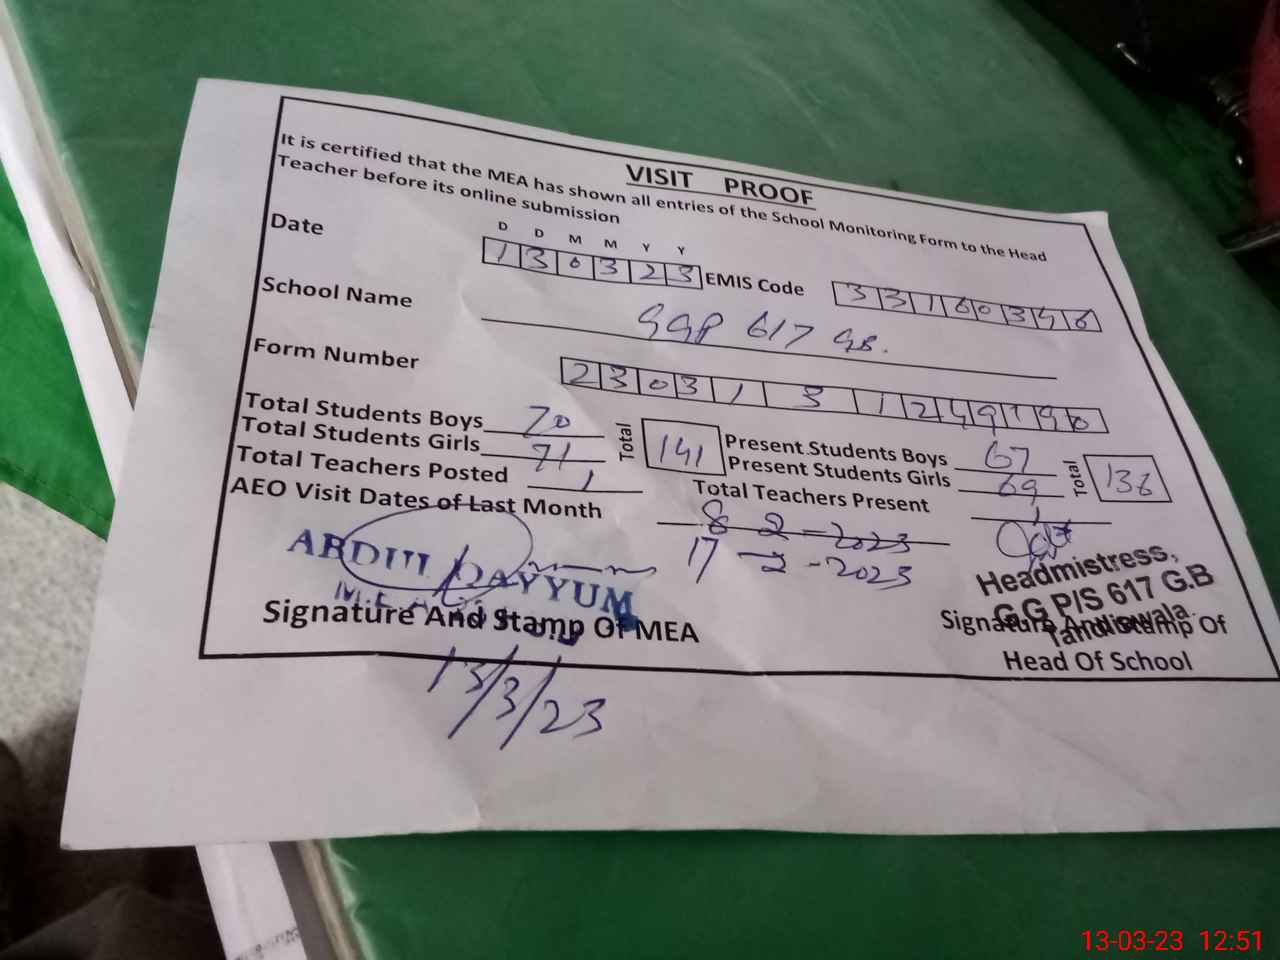 VISIT PROOF
It is certified that the MEA has shown all entries of the School Monitoring Form to the Head
Teacher before its online submission
D D M M Y Y
Date 130323 EMIS Code 33160346
School Name GGP 617 GB.
Form Number 2303131249190
Total Students Boys 70 Total 141 Present Students Boys 67 Total 136
Total Students Girls 71 Present Students Girls 69
Total Teachers Posted 1 Total Teachers Present 1
AEO Visit Dates of Last Month 8-2-2023
17-2-2023
ABDUL QAYYUM
M.E.A
Signature And Stamp Of MEA
Headmistress,
G.G P/S 617 G.B
Tandlswala.
Signature And Stamp Of
Head Of School
13/3/23
13-03-23 12:51